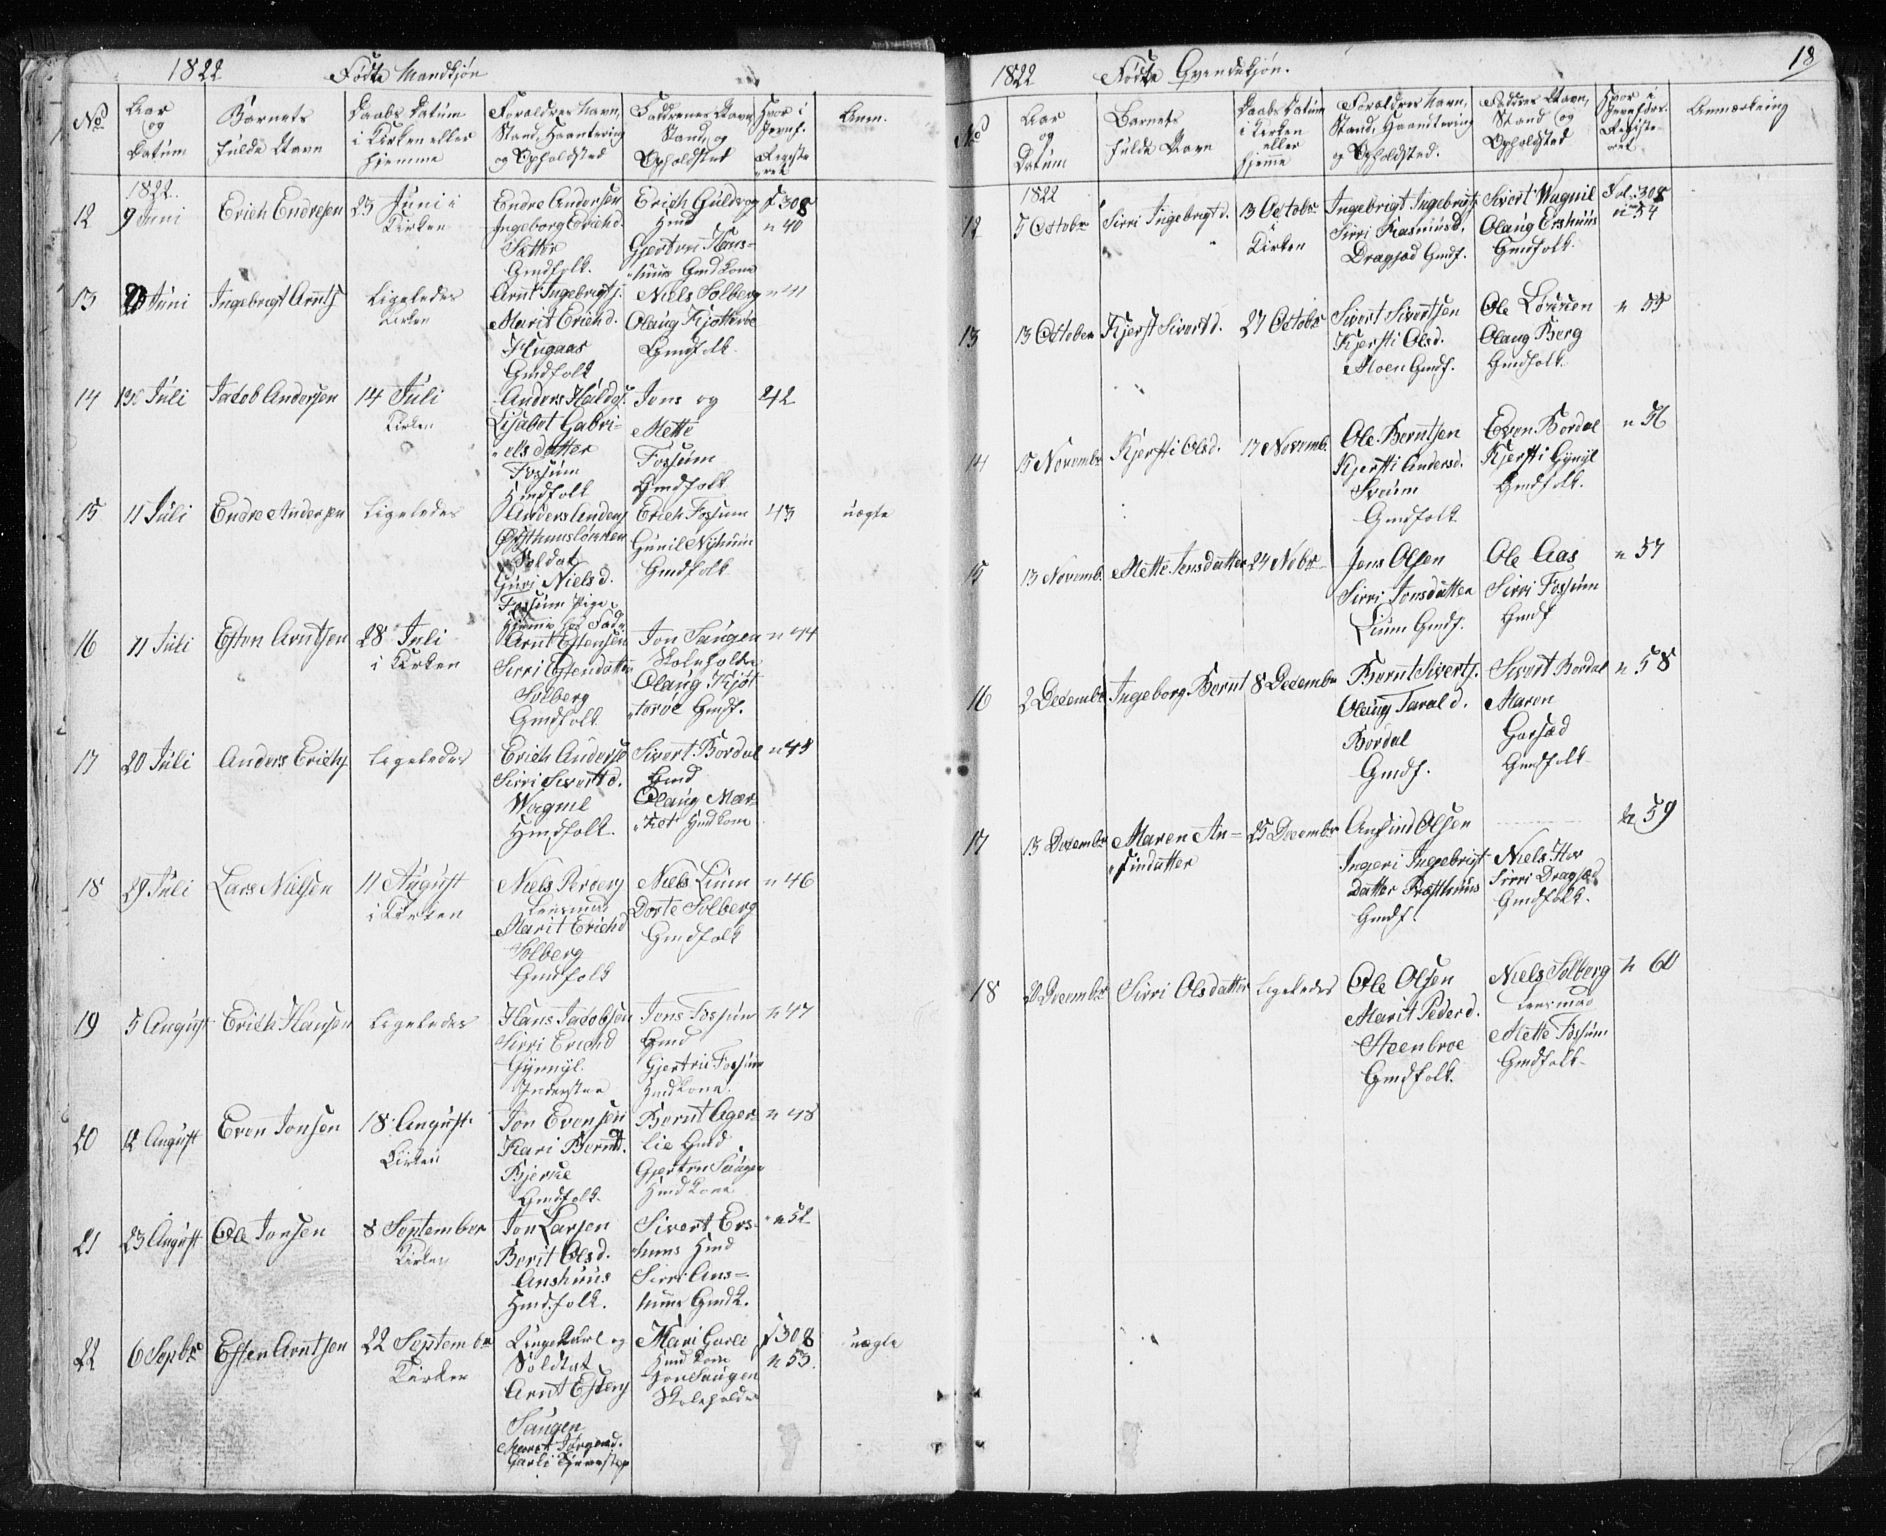 1822 Fødte Mandkjøn
No
Aar
og
Datum
Barnets
fulde Navn
Daabs Datum
i Kirken eller
hjemme
Forældres Navn,
Stand, Haantering
og Opholdsted
Faddrenes Navn
Stand, og
Opholdsted
Hvor i
Jevnf.
Registe
ret
Anm.
1822
12 9 Juni Erich Endresen 23 Juni i
Kirken
Endre Andersen
Ingeborg Erichd.
Sætter
Gmdfolk.
Erich Guldsog
Hmd
Gjertru
Gmdkone
F 308
n 40
13 Juni Ingebrigt Arnts. Ligeledes
Kirken
Arnt Ingebrigts.
Marit Erichd.
Hugaas
Gmdfolk
Niels Solberg
Olaug Kjøtteroe
Gmdfolk.
n 41
14 Juli Jacob Andersen 14 Juli
Kirken
Anders Haldos.
Lisabet Gabri-
els datter
Fossum
Hmdfolk
Jons og
Mette
Fossum
Gmdfolk
42
15 11 Juli Endre Andersen Ligeledes
Anders Anders.
Soldat
Guri Nielsd.
Fossum Pige
Erich Fossum
Gunil Nyhuun
Gmdfolk
43 uægte
16 11 Juli Esten Arntsen 28 Juli
i Kirken
Arnt Estensen
Sirri Estensdatter
Solberg
Gmdfolk
Jon Saugen
Skoleholder
Olaug Kjøt
teroe Gmdf.
n 44
17 20 Juli Anders Erichs. Ligeledes
Erich Anders.
Sirri Sivertd.
Wagnil
Hmdfolk.
Sivert Bordal
Gmd
Olaug Mær-
ket Hmdkone
n 45
18 29 Juli Lars Nielsen 11 August
i Kirken
Niels Peders.
Lensmad
Marit Erichd
Solberg
Gmdfolk
Niels Lium
Dorte Solberg
Gmdfolk
n 46
19 5 August Erich Hansen Ligeledes
Hans Jacobsen
Sirri Erichd
Gynnyl.
Inderster
Jons Fossum
Gmd
Gjertru Fossum
Hmdkone.
n 47
20 12 August Even Jonsen 18 August.
Kirken
Jon Evensen
Kari Berntd.
Bjerke
Gmdfolk.
Bernt Ager-
lie Gmd
Gjertru Saugen
Hmdkone
n 48
21 23 August Ole Jonsen 8 September
Kirken
Jon Larsen
Berit Olsd.
Anshuus
Hmd.folk.
Sivert Ers-
huus Hmd
Sirri Ans-
huus Gmdk.
n 52
22 6 Sepbr Esten Arntsen 22 Septembr
Kirken
Ungekarl og
Soldat
Arnt Estens.
Saugen
Garli
Mari Garli
Hmdkone
Jon Saugen
Skoleholder
F 308
n 53.
uægte
1822 Fødte Qvindekjøn. 18
No
Aar
og
Datum
Barnets
fulde Navn
Daabs Datum
i Kirken
eller
hjemme
Forældres Navn,
Stand, Haandtering
og Opholdsted.
Faddres Navn,
Stand og
Opholdsted
Hvor i
Jevnførs.
Registe-
ret.
Anmærkning
1822
12 5 Octobr Sirri Ingebrigtd. 13 Octobr
i
Kirken
Ingebrigt Ingebrigts.
Sirri Rasmusd.
Dragsæd Gmdf.
Sivert Wagnil
Olaug Ershuus
Gmdfolk.
Fol. 308
n 54
13 13 October Kjerst Sivertd. 27 Octobr
Sivert Sivertsen
Kjersti Olsd.
Moen Gmdf.
Ole Løkken
Olaug Berg
Gmdfolk.
n 55
14 15 Novembr Kjersti Olsd. 17 Novemb.
Ole Berntsen
Kjersti Andersd.
Svøum
Gmdfolk
Even Bordal
Kjersti Gynyl
Gmdfolk.
n 56
15 13 Novemb. Mette Jensdatter 24 Nobr
Jens Olsen
Sirri Jonsdatter
Lium Gmdf.
Ole Aas
Sirri Fossum
Gmdf
n 57
16 2 Decembr Ingeborg Bernt 8 Decembr
Bernt Siverts.
Olaug Tarald.
Bordal
Gmdf.
Sivert Bordal
Maren
Garsæd
Gmdfolk
n 58
17 13 Decembr Maren An-
findatter
25 Decembr
Anfind Olsen
Ingeri Ingebrigt
datter Præsthuus
Gmdf
Niels Hov
Sirri Dragsæd
Gmdfolk.
n 59
18 20 December Sirri Olsdatter Ligeledes
Ole Olsen
Marit Pederd.
Steenbroe
Gmdfolk.
Niels Solberg
Lensmad
Mette Fossum
Gmdfolk
n 60